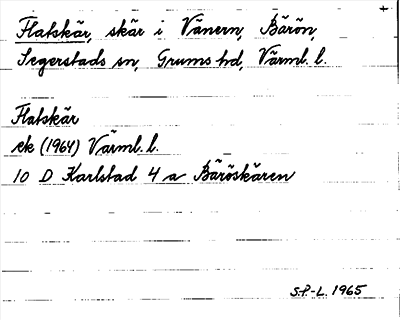 Flatskär, skär i Vänern, Bärön,
Segerstads sn, Grums hd, Värml. l.
Flatskär
ek (1964) Värml. l.
10 D Karlstad 4 a Bäröskären
S.P-L. 1965